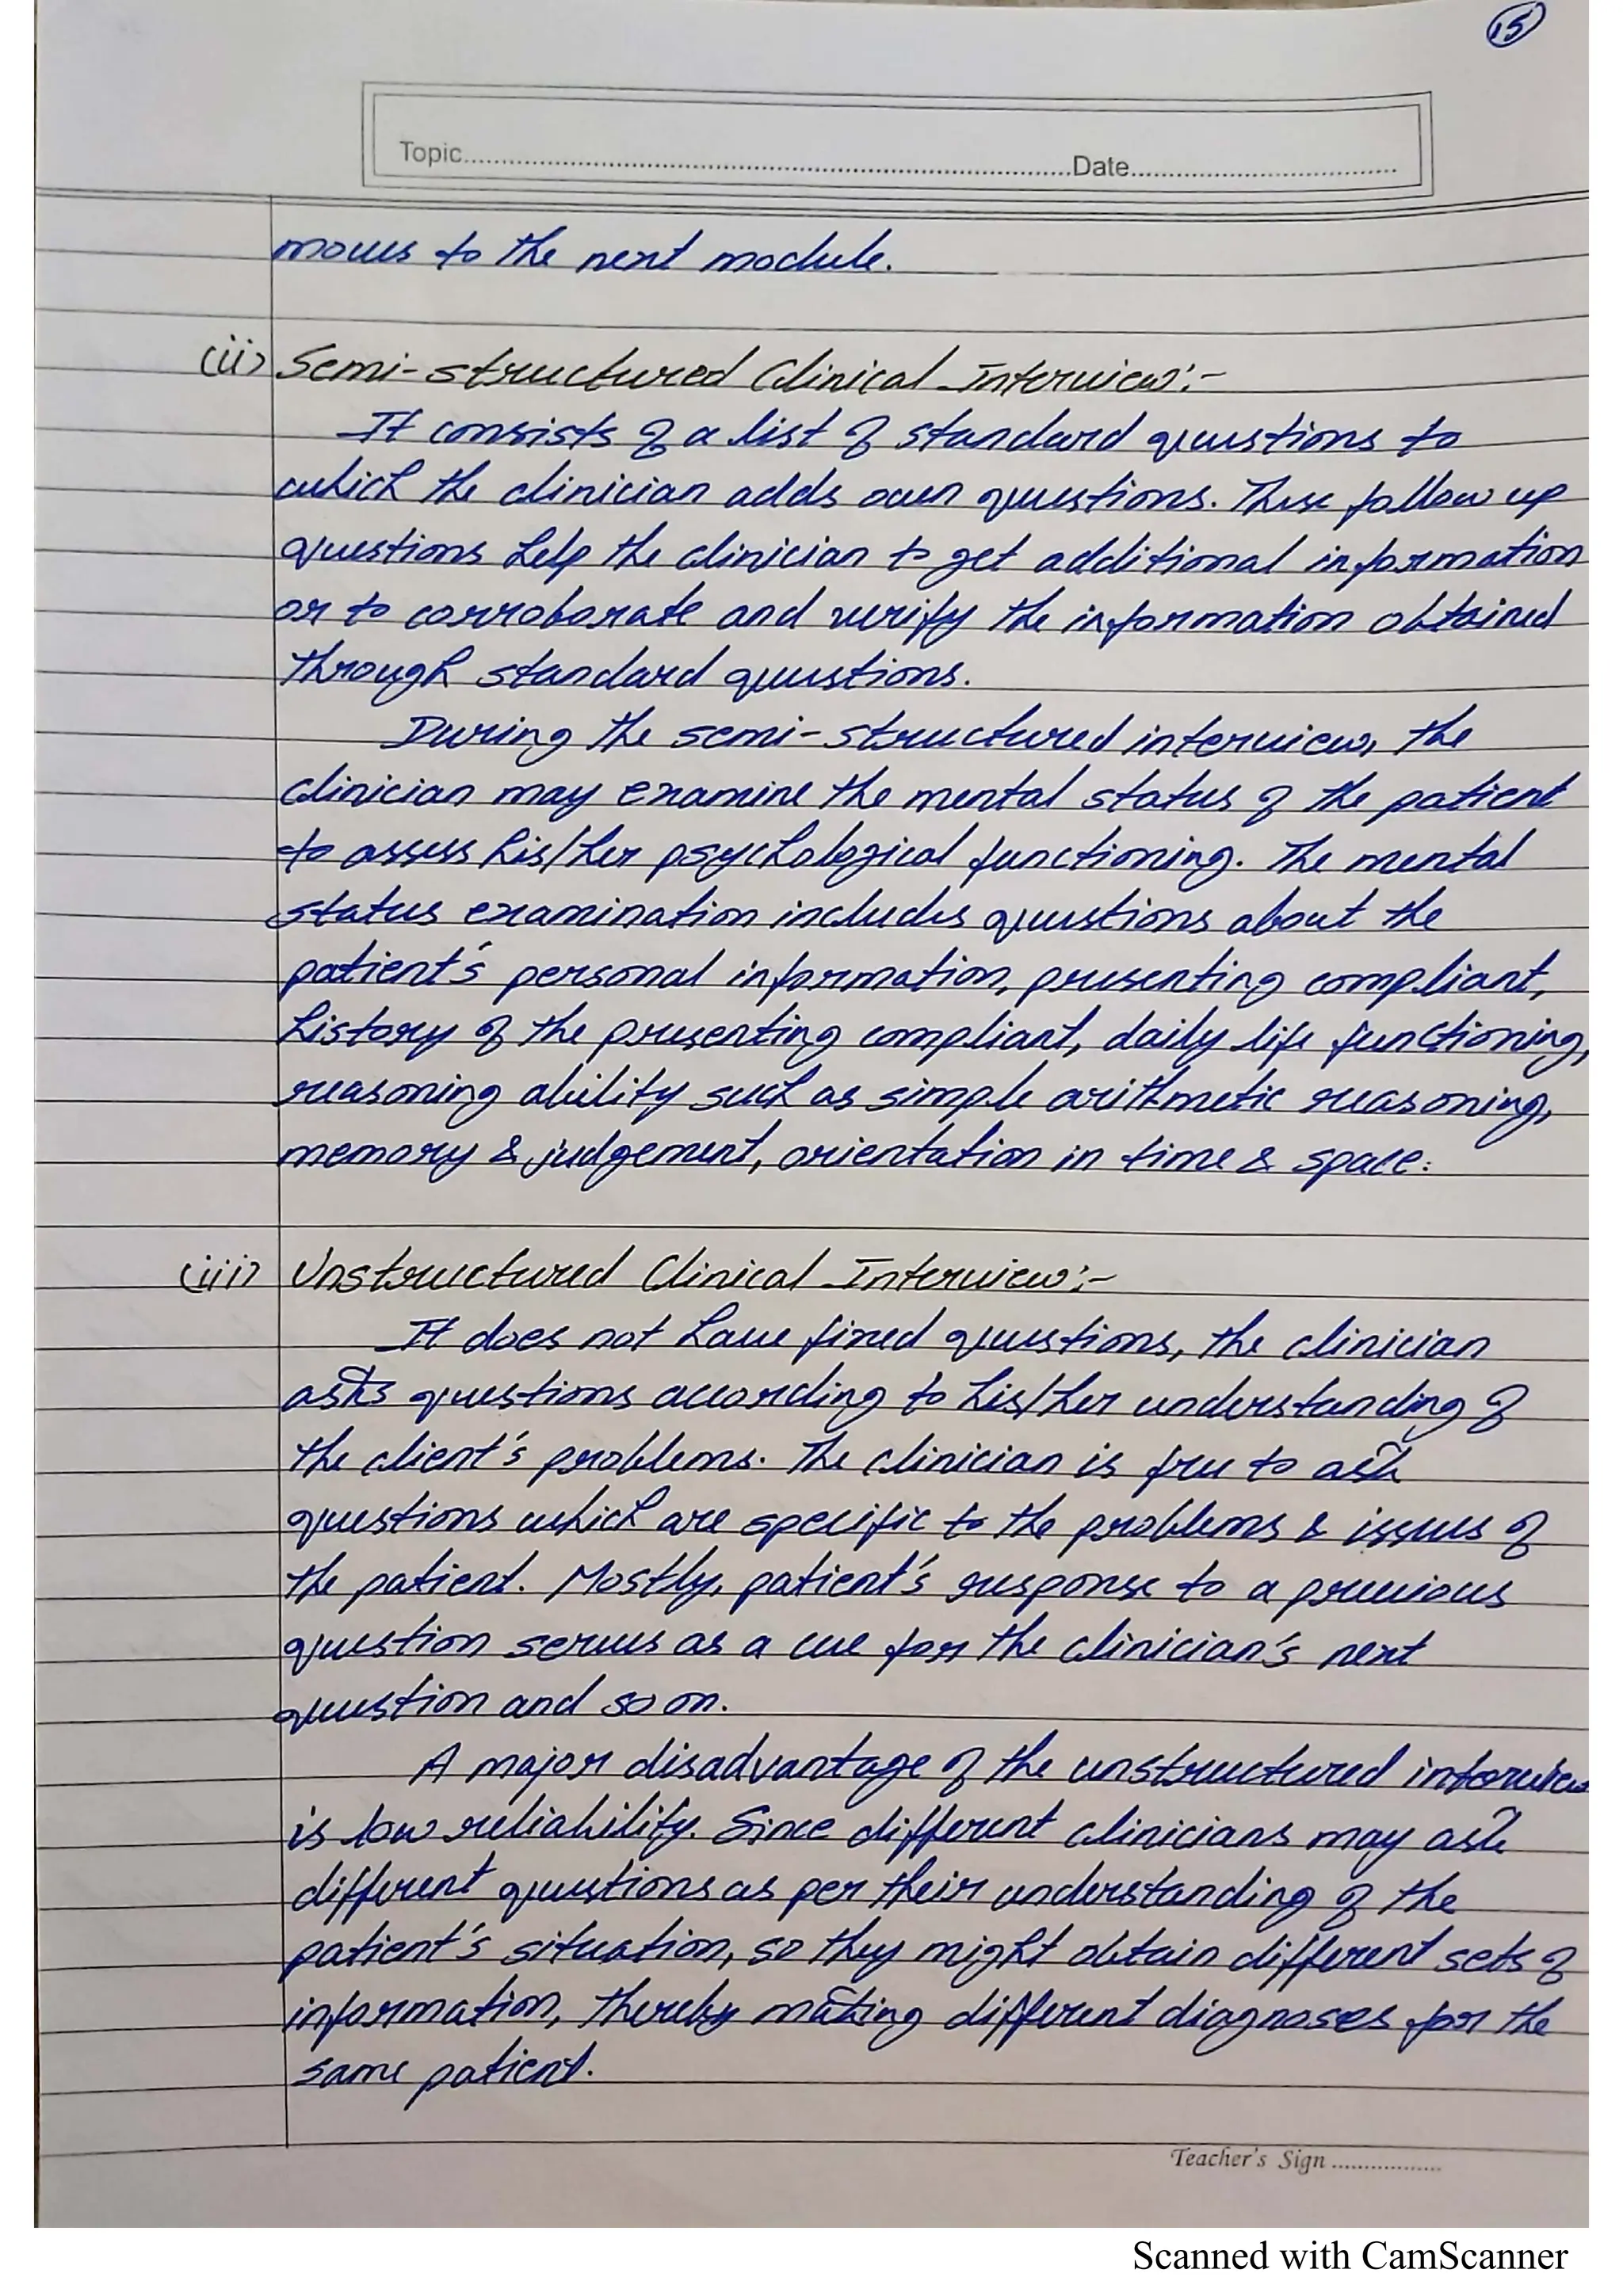 15
Topic..........Date..........
moves to the next module.
(ii) Semi-structured Clinical Interview:-
It consists of a list of standard questions to
which the clinician adds own questions. These follow up
questions help the clinician to get additional information
or to corroborate and verify the information obtained
through standard questions.
During the semi-structured interview, the
clinician may examine the mental status of the patient
to assess his/her psychological functioning. The mental
status examination includes questions about the
patient's personal information, presenting compliant,
history of the presenting compliant, daily life functioning,
reasoning ability such as simple arithmetic reasoning,
memory & judgement, orientation in time & space.
(iii) Unstructured Clinical Interview:-
It does not have fixed questions, the clinician
asks questions according to his/her understanding of
the client's problems. The clinician is free to ask
questions which are specific to the problems & issues of
the patient. Mostly, patient's response to a previous
question serves as a cue for the clinician's next
question and so on.
A major disadvantage of the unstructured interview
is low reliability. Since different clinicians may ask
different questions as per their understanding of the
patient's situation, so they might obtain different sets of
information, thereby making different diagnoses for the
same patient.
Teacher's Sign..........
Scanned with CamScanner